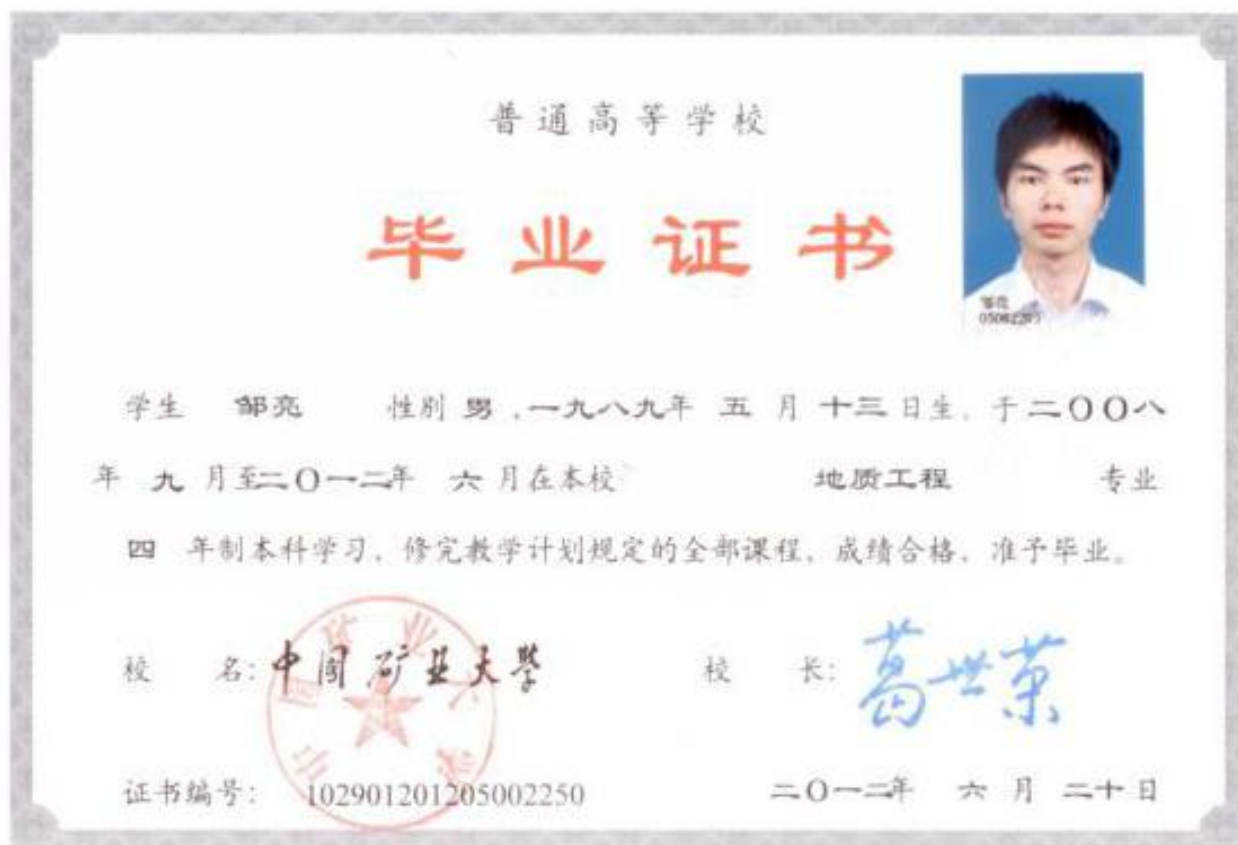 普通高等学校
毕业证书
邹亮
学生 邹亮 性别 男，一九八九年 五 月 十三 日生，于二〇〇八
年 九 月至二〇一二年 六 月在本校 地质工程 专业
四 年制本科学习，修完教学计划规定的全部课程，成绩合格，准予毕业。
校 名：中国矿业大学 校 长：葛世荣
证书编号： 102901201205002250 二〇一二年 六 月 二十 日